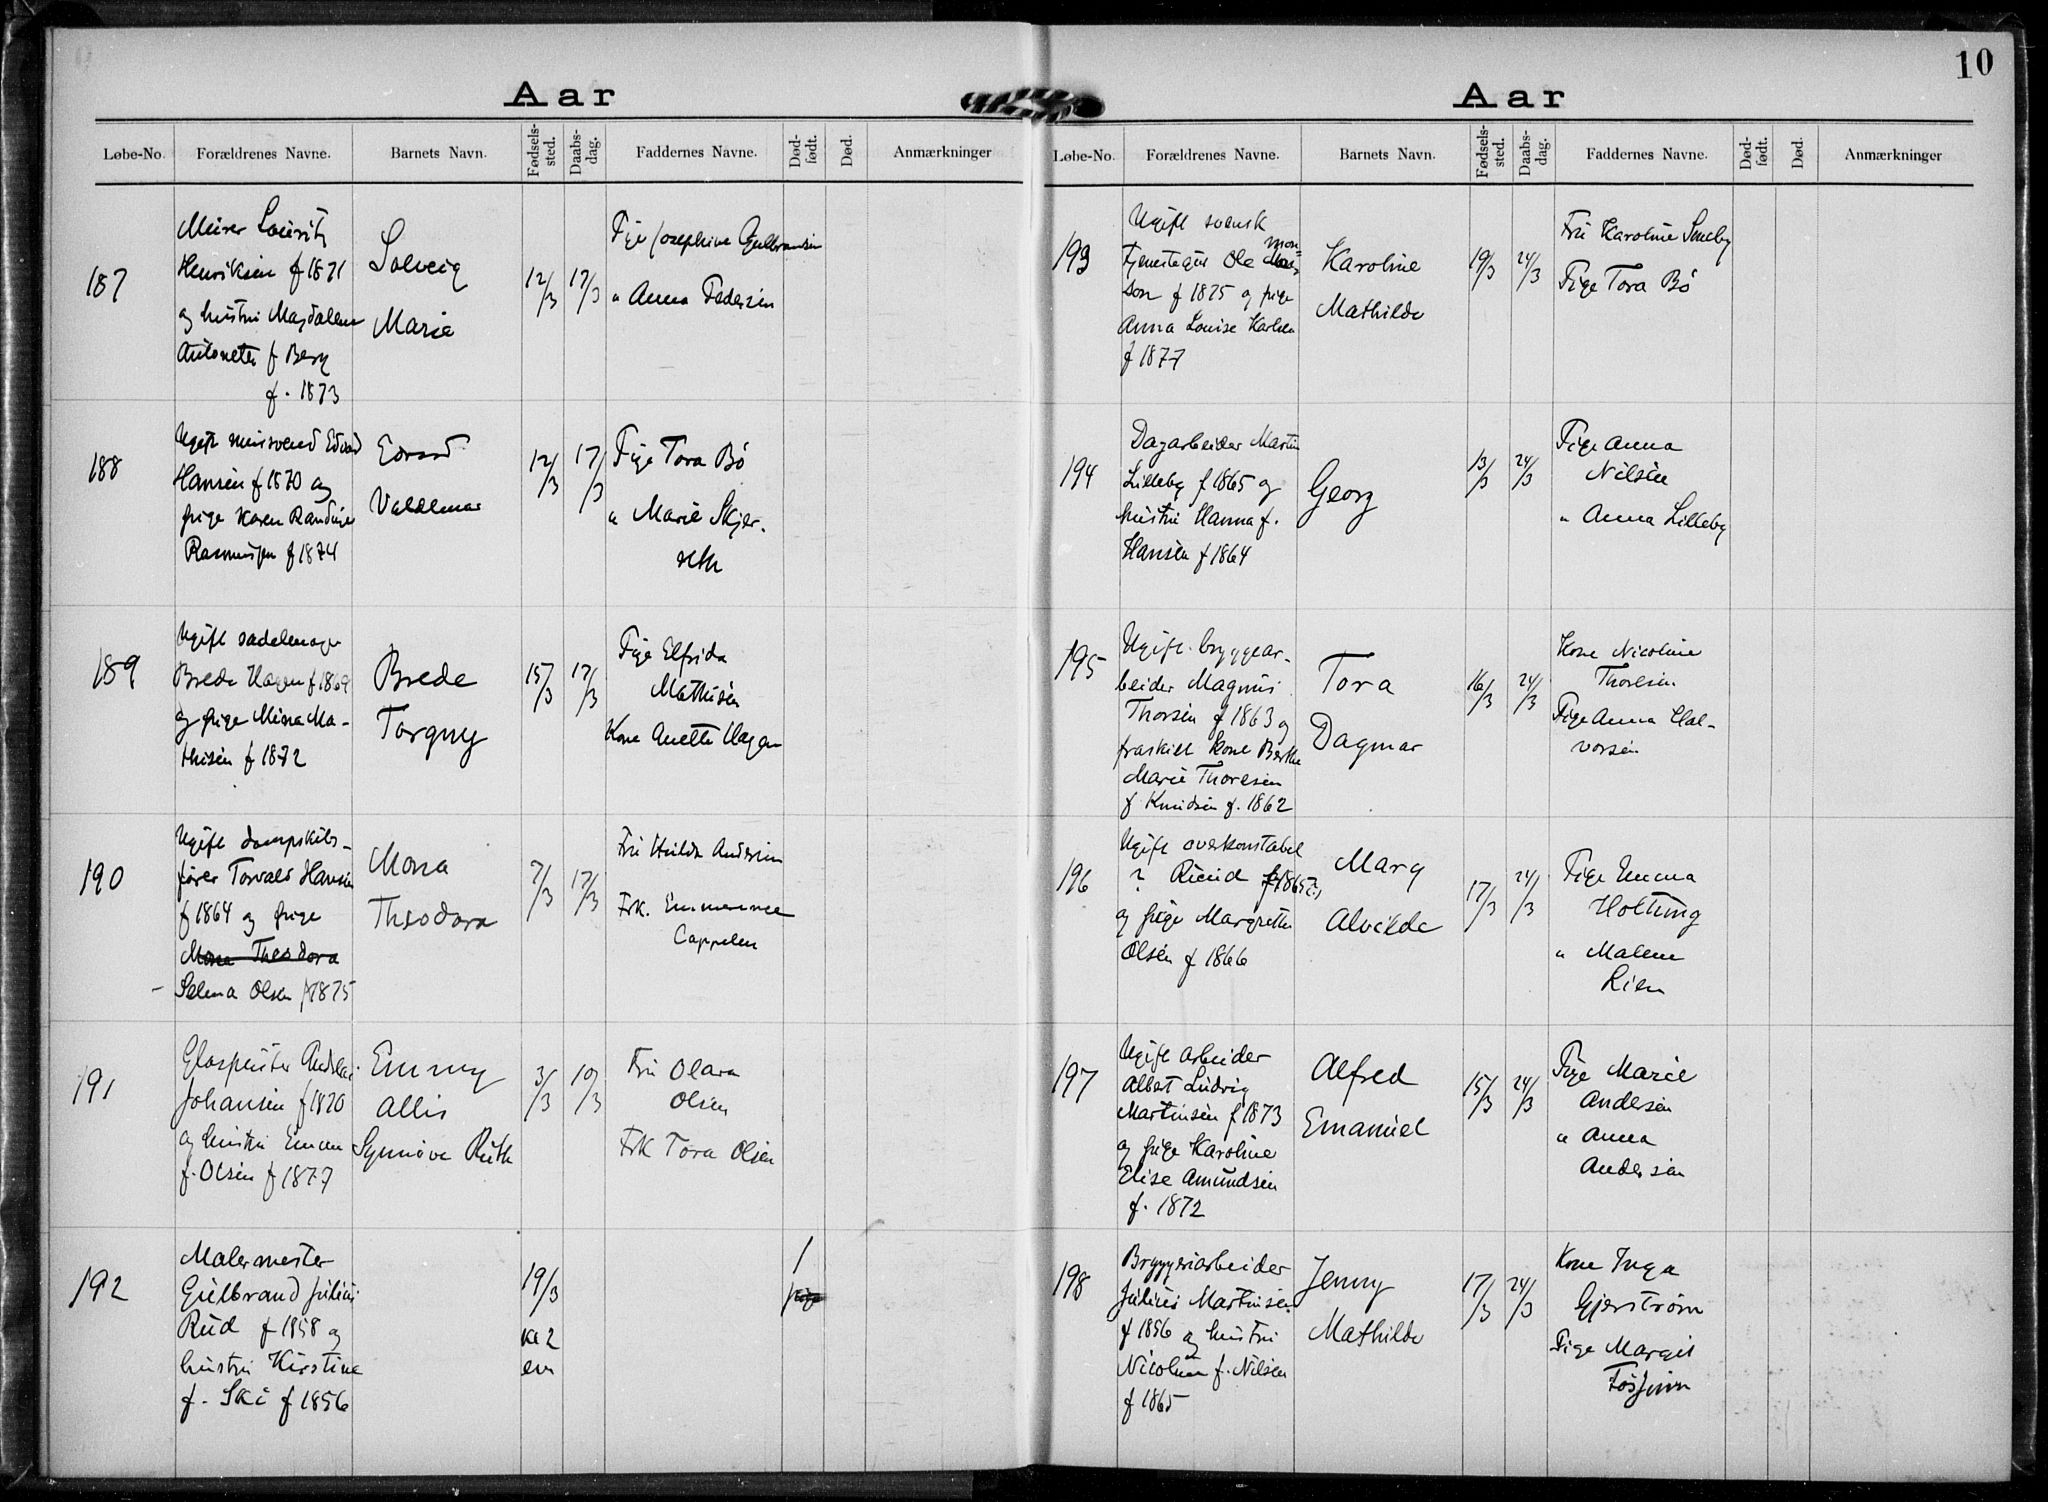 10
Aar
Løbe-No. Forældrenes Navne. Barnets Navn. Fødsels-sted. Daabs-dag. Faddernes Navne. Død-født. Død. Anmærkninger
187
Murer Lauritz
Henriksen f 1871
og hustru Magdalena
Antonette f Berg
f. 1873
Solveig
Marie
12/3
17/3
Pige Josephine Gulbrandsen
" Anna Pedersen
188
Ugift mursvend Edvard
Hansen f 1870 og
pige Karen Randine
Rasmussen f 1874
Edvard
Valdemar
12/3
17/3
Pige Tora Bø
" Marie Skjer-
seth
189
Ugift sadelmager
Brede Hagen f 1869
og pige Mina Ma-
thisen f 1872
Brede
Torgny
15/3
17/3
Pige Elfrida
Mathisen
Kone Anette Hagen
190
Ugift dampskibs-
fører Torvald Hansen
f 1864 og pige
Mona Theodora
Selma Olsen f 1875
Mona
Theodora
7/3
17/3
Fru Hulda Andersen
Frk. Emmerence
Cappelen
191
Glaspuster Andreas
Johansen f 1870
og hustru Emma
f. Olsen f 1877
Emmy
Allis
Synnøve Ruth
3/3
10/3
Fru Olava
Olsen
Frk Tora Olsen
192
Malermester
Gulbrand Julius
Rud f 1858 og
hustru Kirstine
f. Ski f 1856
19/3
kl 2
em
1
pige
Aar
Løbe-No. Forældrenes Navne. Barnets Navn. Fødsels-sted. Daabs-dag. Faddernes Navne. Død-født. Død. Anmærkninger
193
Ugift svensk
Tjenestegut Ole Mon=
son f 1875 og pige
Anna Louise Karlsen
f 1877
Karoline
Mathilde
19/3
24/3
Fru Karoline Smeby
Pige Tora Bø
194
Dagarbeider Martin
Lilleby f 1865 og
hustru Hanna f.
Hansen f 1864
Georg
13/3
24/3
Pige Anna
Nilsen
" Anna Lilleby
195
Ugift bryggear-
beider Magnus
Thorsen f 1863 og
fraskilt kone Berthe
Marie Thoresen
f Knudsen f. 1862
Tora
Dagmar
16/3
24/3
Kone Nicoline
Thoresen
Pige Anna Hal-
vorsen
196
Ugift overkonstabel
? Ruud f 1865
og pige Margrethe
Olsen f 1866
Mary
Alvilde
17/3
24/3
Pige Emma
Holtung
" Malene
Lien
197
Ugift arbeider
Albert Ludvig
Martinsen f 1873
og pige Karoline
Elise Amundsen
f. 1872
Alfred
Emanuel
15/3
24/3
Pige Marie
Andersen
" Anna
Andersen
198
Bryggeriarbeider
Julius Martinsen
f 1856 og hustru
Nicolina f. Nilsen
f 1865
Jenny
Mathilde
17/3
24/3
Kone Inga
Gjerstrøm
Pige Margit